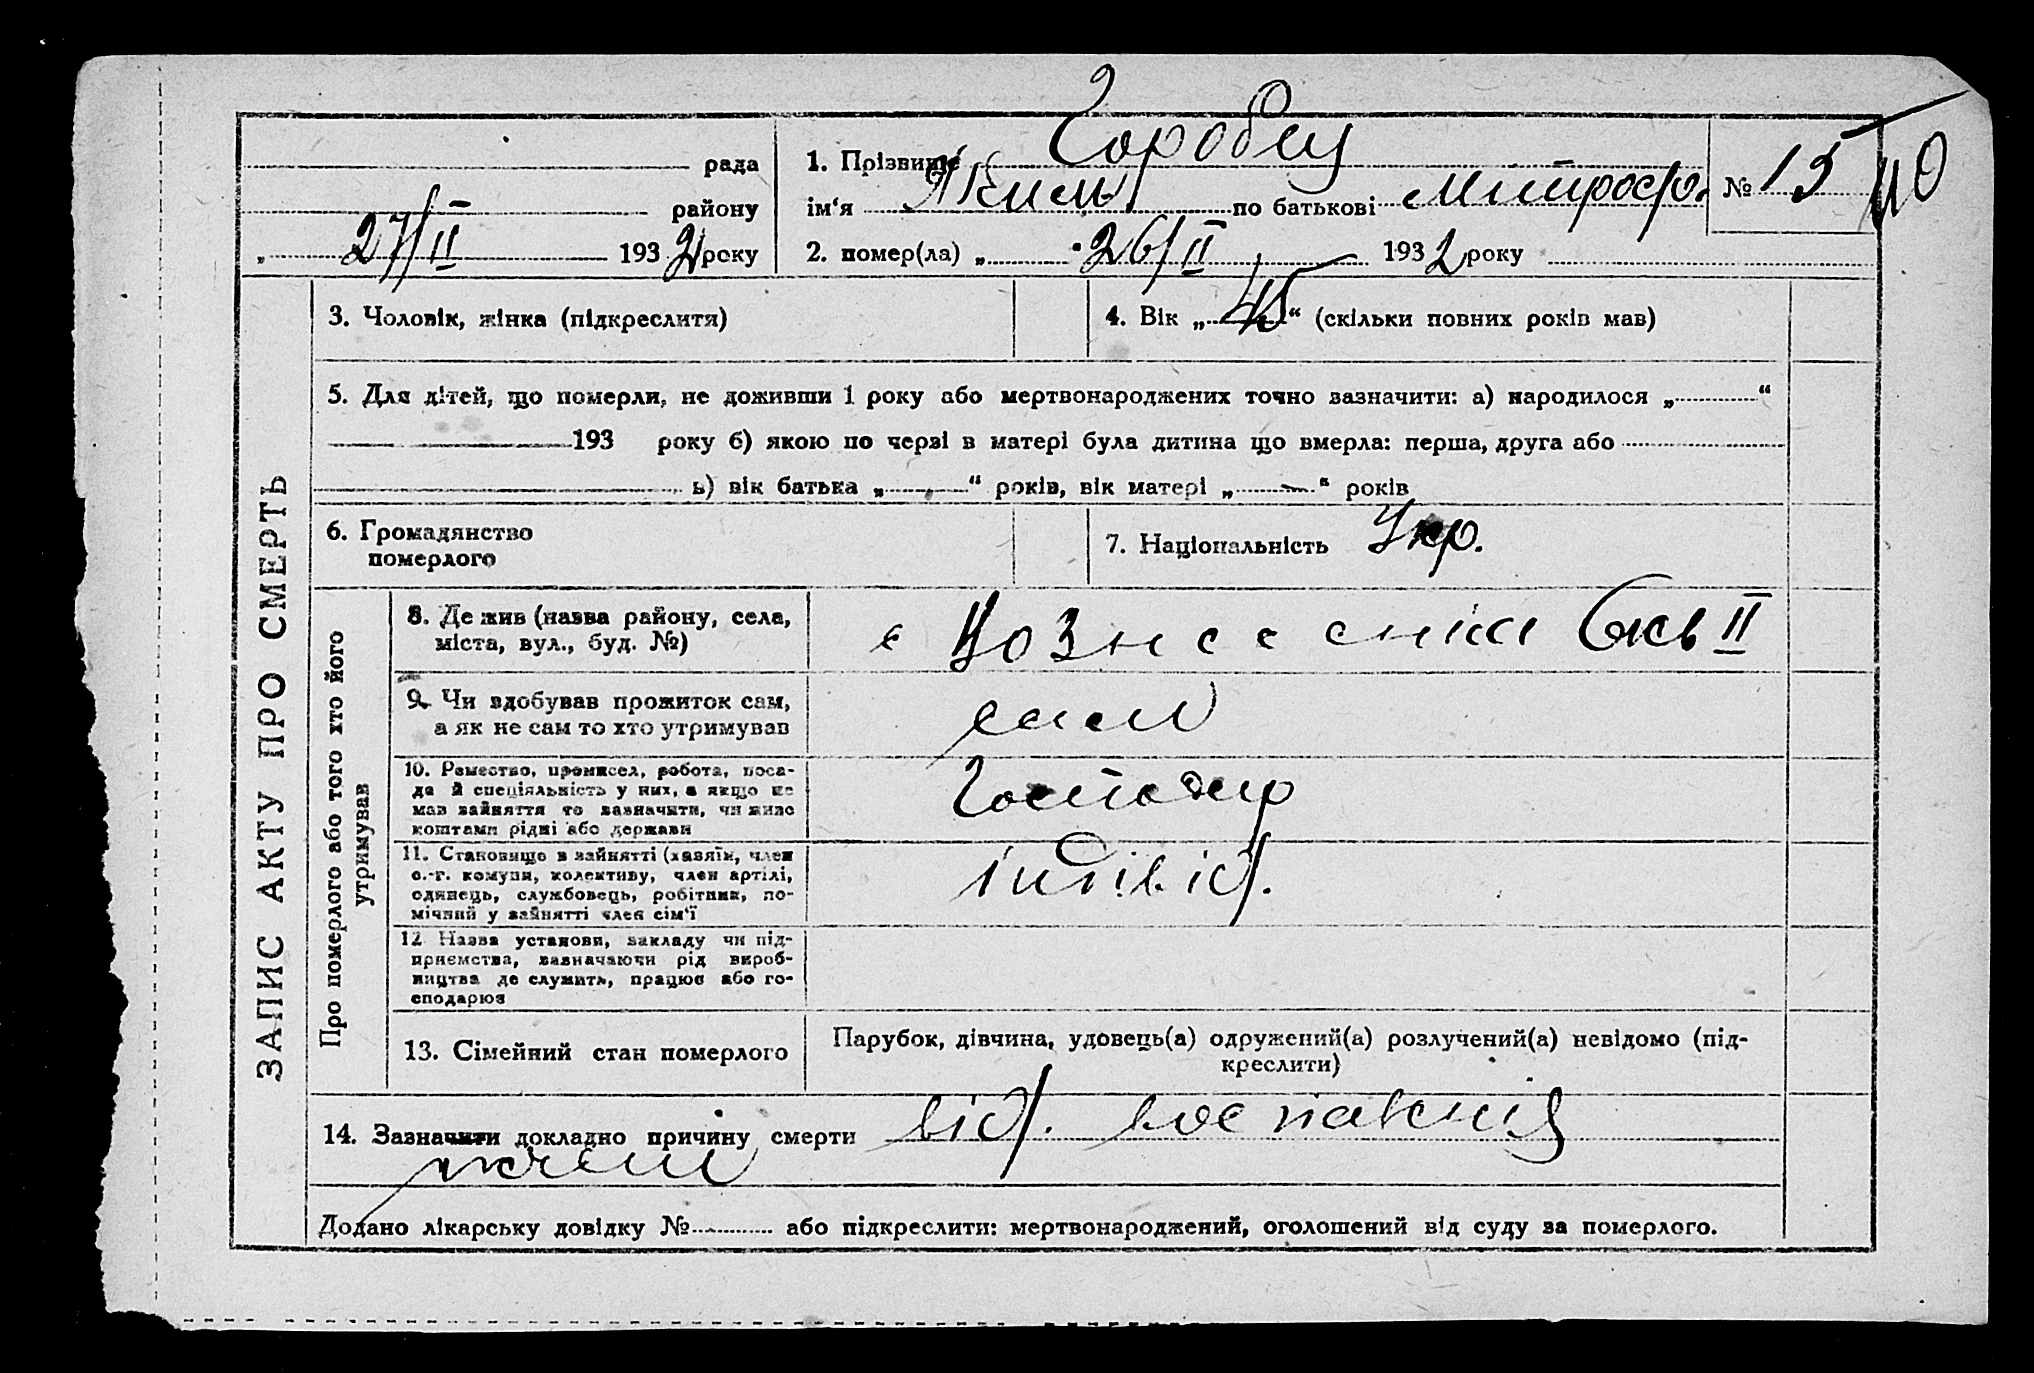 ЗАПИС АКТУ ПРО СМЕРТЬ
рада
району
„ 27/II 1932 року
1. Прізвище Горобец
ім‘я по батькові Митроф.
№ 15
110
2. помер(ла) „ 26/II 1932 року
3. Чоловік, жінка (підкреслити)
4. Вік „45“ (скільки повних років мав)
5. Для дітей, що померли, не доживши 1 року або мертвонароджених точно зазначити: а) народилося „ “
193 року б) якою по черзі в матері була дитина що вмерла: перша, друга або
ь) вік батька „ “ років, вік матері „ “ років
6. Громадянство
померлого
7. Національність Укр.
Про померлого або того хто його
утримував
8. Де жив (назва району, села,
міста, вул., буд. №)
с Вознесенськ II
9. Чи здобував прожиток сам,
а як не сам то хто утримував
сам
10. Ремество, промисел, робота, поса-
да й спеціяльність у них, а якщо не
мав зайняття то зазначити, чи живе
коштами рідні або держави
Господар
11. Становище в зайнятті (хазяїн, член
с.-г. комуни, колективу, член артілі,
одинець, службовець, робітник, по-
мічний у зайнятті член сім‘ї
індівід.
12 Назва установи, закладу чи під-
приємства, зазначаючи рід вироб-
ництва де служить, працює або го-
сподарює
13. Сімейний стан померлого
Парубок, дівчина, удовець(а) одружений(а) розлучений(а) невідомо (під-
креслити)
14. Зазначити докладно причину смерти від. воспаленія
Додано лікарську довідку № або підкреслити: мертвонароджений, оголошений від суду за померлого.